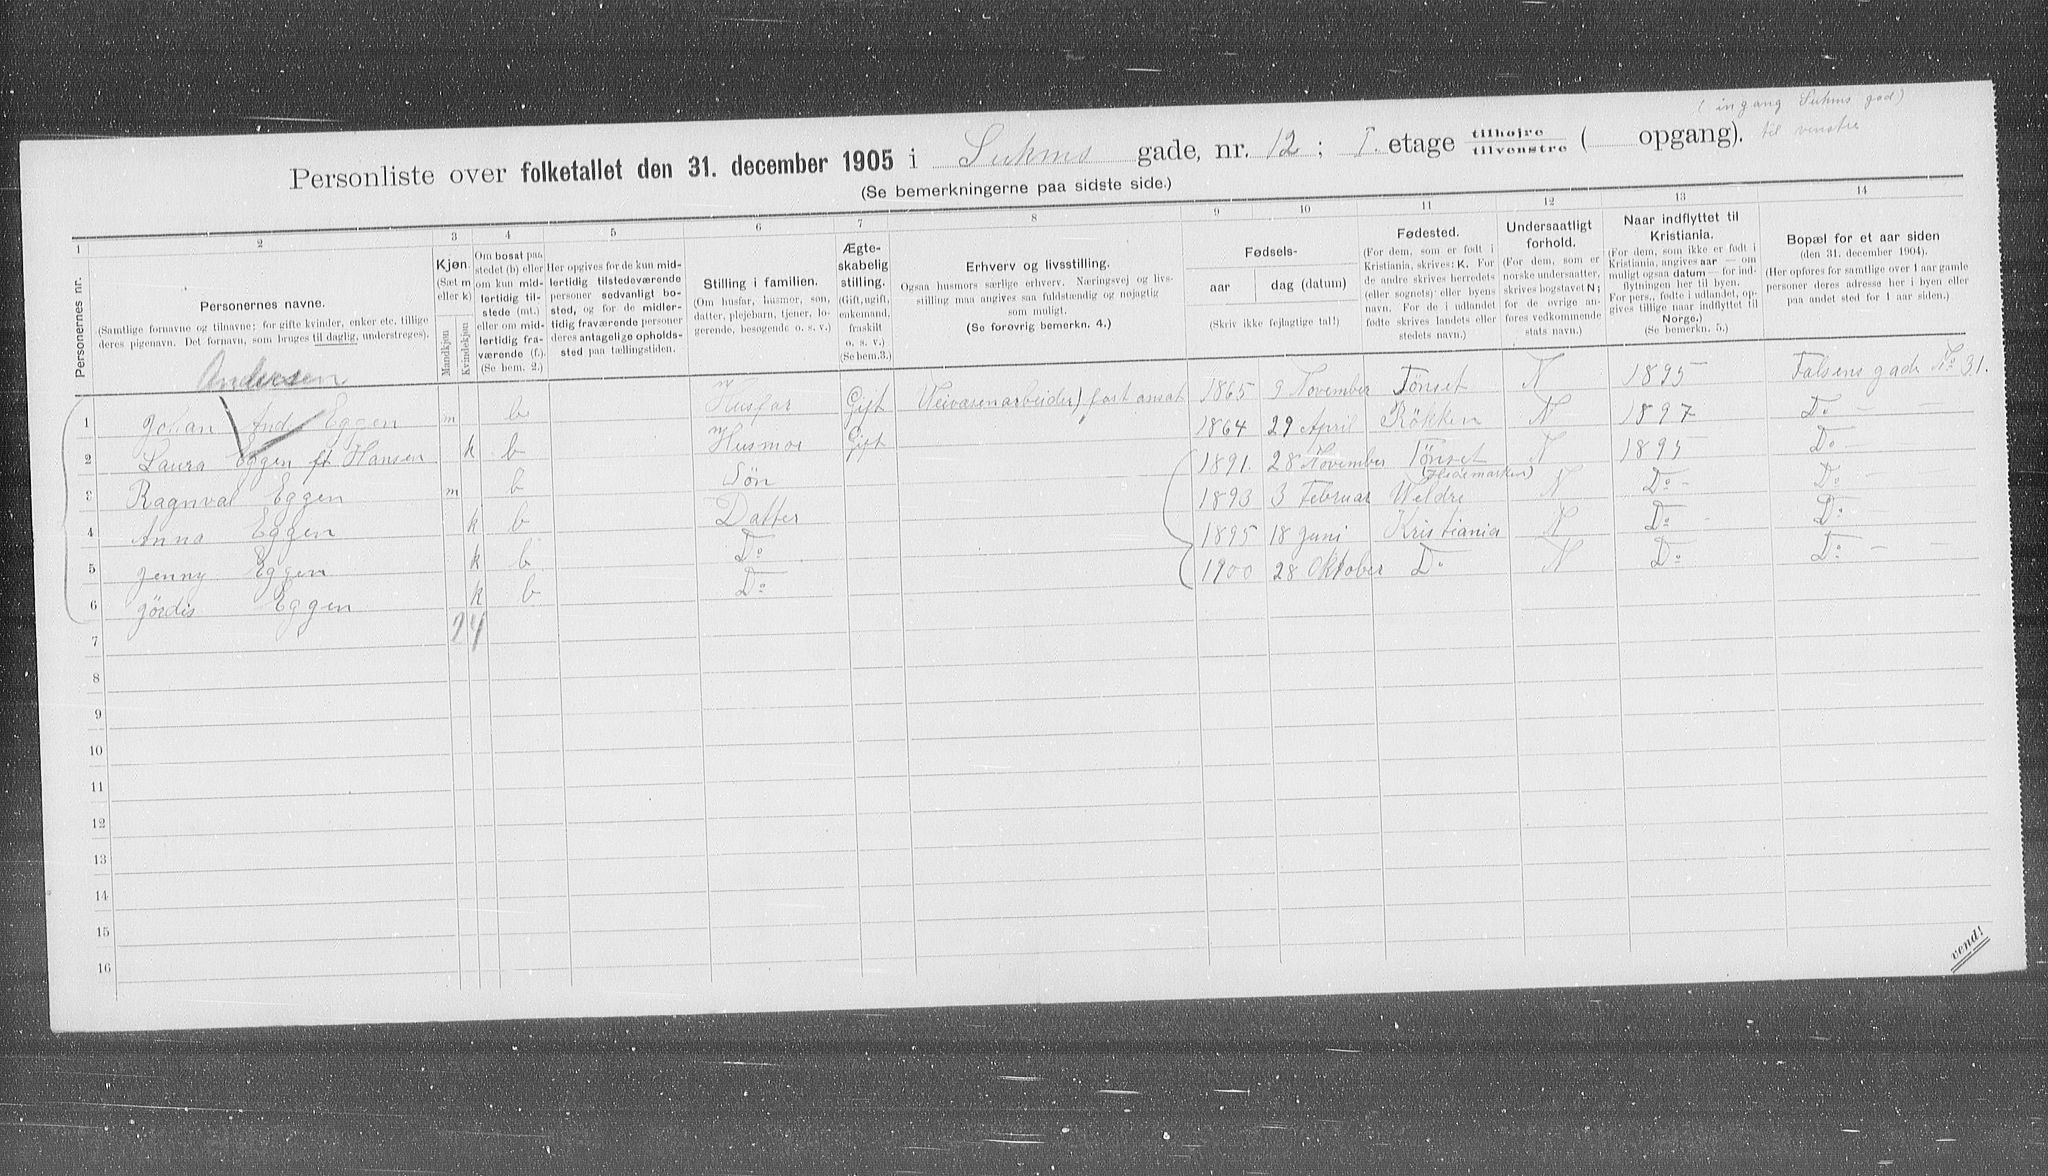 (ingang Suhms gad)
til venstre
Personliste over folketallet den 31. december 1905 i Suhms gade, nr. 12 ; I. etage tilhøjre tilvenstre ( opgang).
(Se bemerkningerne paa sidste side.)
1 2 3 4 5 6 7 8 9 10 11 12 13 14
Personernes nr.
Personernes navne.
(Samtlige fornavne og tilnavne; for gifte kvinder, enker etc. tillige deres pigenavn. Det fornavn, som bruges til daglig, understreges).
Kjøn. (Sæt m eller k)
Mandkjøn
Kvindekjøn
Om bosat paa stedet (b) eller om kun midlertidig tilstede (mt.) eller om midlertidig fraværende (f.). (Se bem. 2.)
Her opgives for de kun midlertidig tilstedeværende personer sedvanligt bosted, og for de midlertidig fraværende personer deres antagelige opholdssted paa tællingstiden.
Stilling i familien.
(Om husfar, husmor, søn, datter, plejebarn, tjener, logerende, besøgende o. s. v.)
Ægteskabelig stilling.
(Gift, ugift, enkemand, fraskilt o. s. v.) (Se bem.3.)
Erhverv og livsstilling.
Ogsaa husmors særlige erhverv. Næringsvej og livsstilling maa angives saa fuldstændig og nøjagtig som muligt.
(Se forøvrig bemerkn. 4.)
Fødsels-
aar dag (datum)
(Skriv ikke fejlagtige tal!)
Fødested.
(For dem, som er født i Kristiania, skrives: K. For de andre skrives herredets (eller sognets) eller byens navn. For de i udlandet fødte skrives landets eller stedets navn.)
Undersaatligt forhold.
(For dem, som er norske undersaatter, skrives bogstavet N; for de øvrige anføres vedkommende stats navn.)
Naar indflyttet til Kristiania.
(For dem, som ikke er født i Kristiania, angives aar — om muligt ogsaa datum — for indflytningen her til byen. For pers., fødte i udlandet, opgives tillige naar indflyttet til Norge.) (Se bemerkn. 5.)
Bopæl for et aar siden
(den 31. december 1904).
(Her opføres for samtlige over 1 aar gamle personer deres adresse her i byen eller paa andet sted for 1 aar siden.)
Andersen
1 Johan And Eggen m b Husfar Gift Veivæsenarbeider) fast ansat 1865 9 November Tönset N 1895 Falsens gade No 31.
2 Laura Eggen ft Hansen k b Husmor Gift 1864 29 April Rökken N 1897 Do — —
3 Ragnval Eggen m b Sön 1891. 28 November Tönset (Hedemarken) N 1895 Do — —
4 Anna Eggen k b Datter 1893 3 Februar Veldre N Do - Do —
5 Jenny Eggen k b Do 1895 18 juni Kristiania N Do - Do — —
6 Jördis Eggen k b Do 1900 28 Oktober Do N Do Do — —
7 2 4
8
9
10
11
12
13
14
15
16
vend!